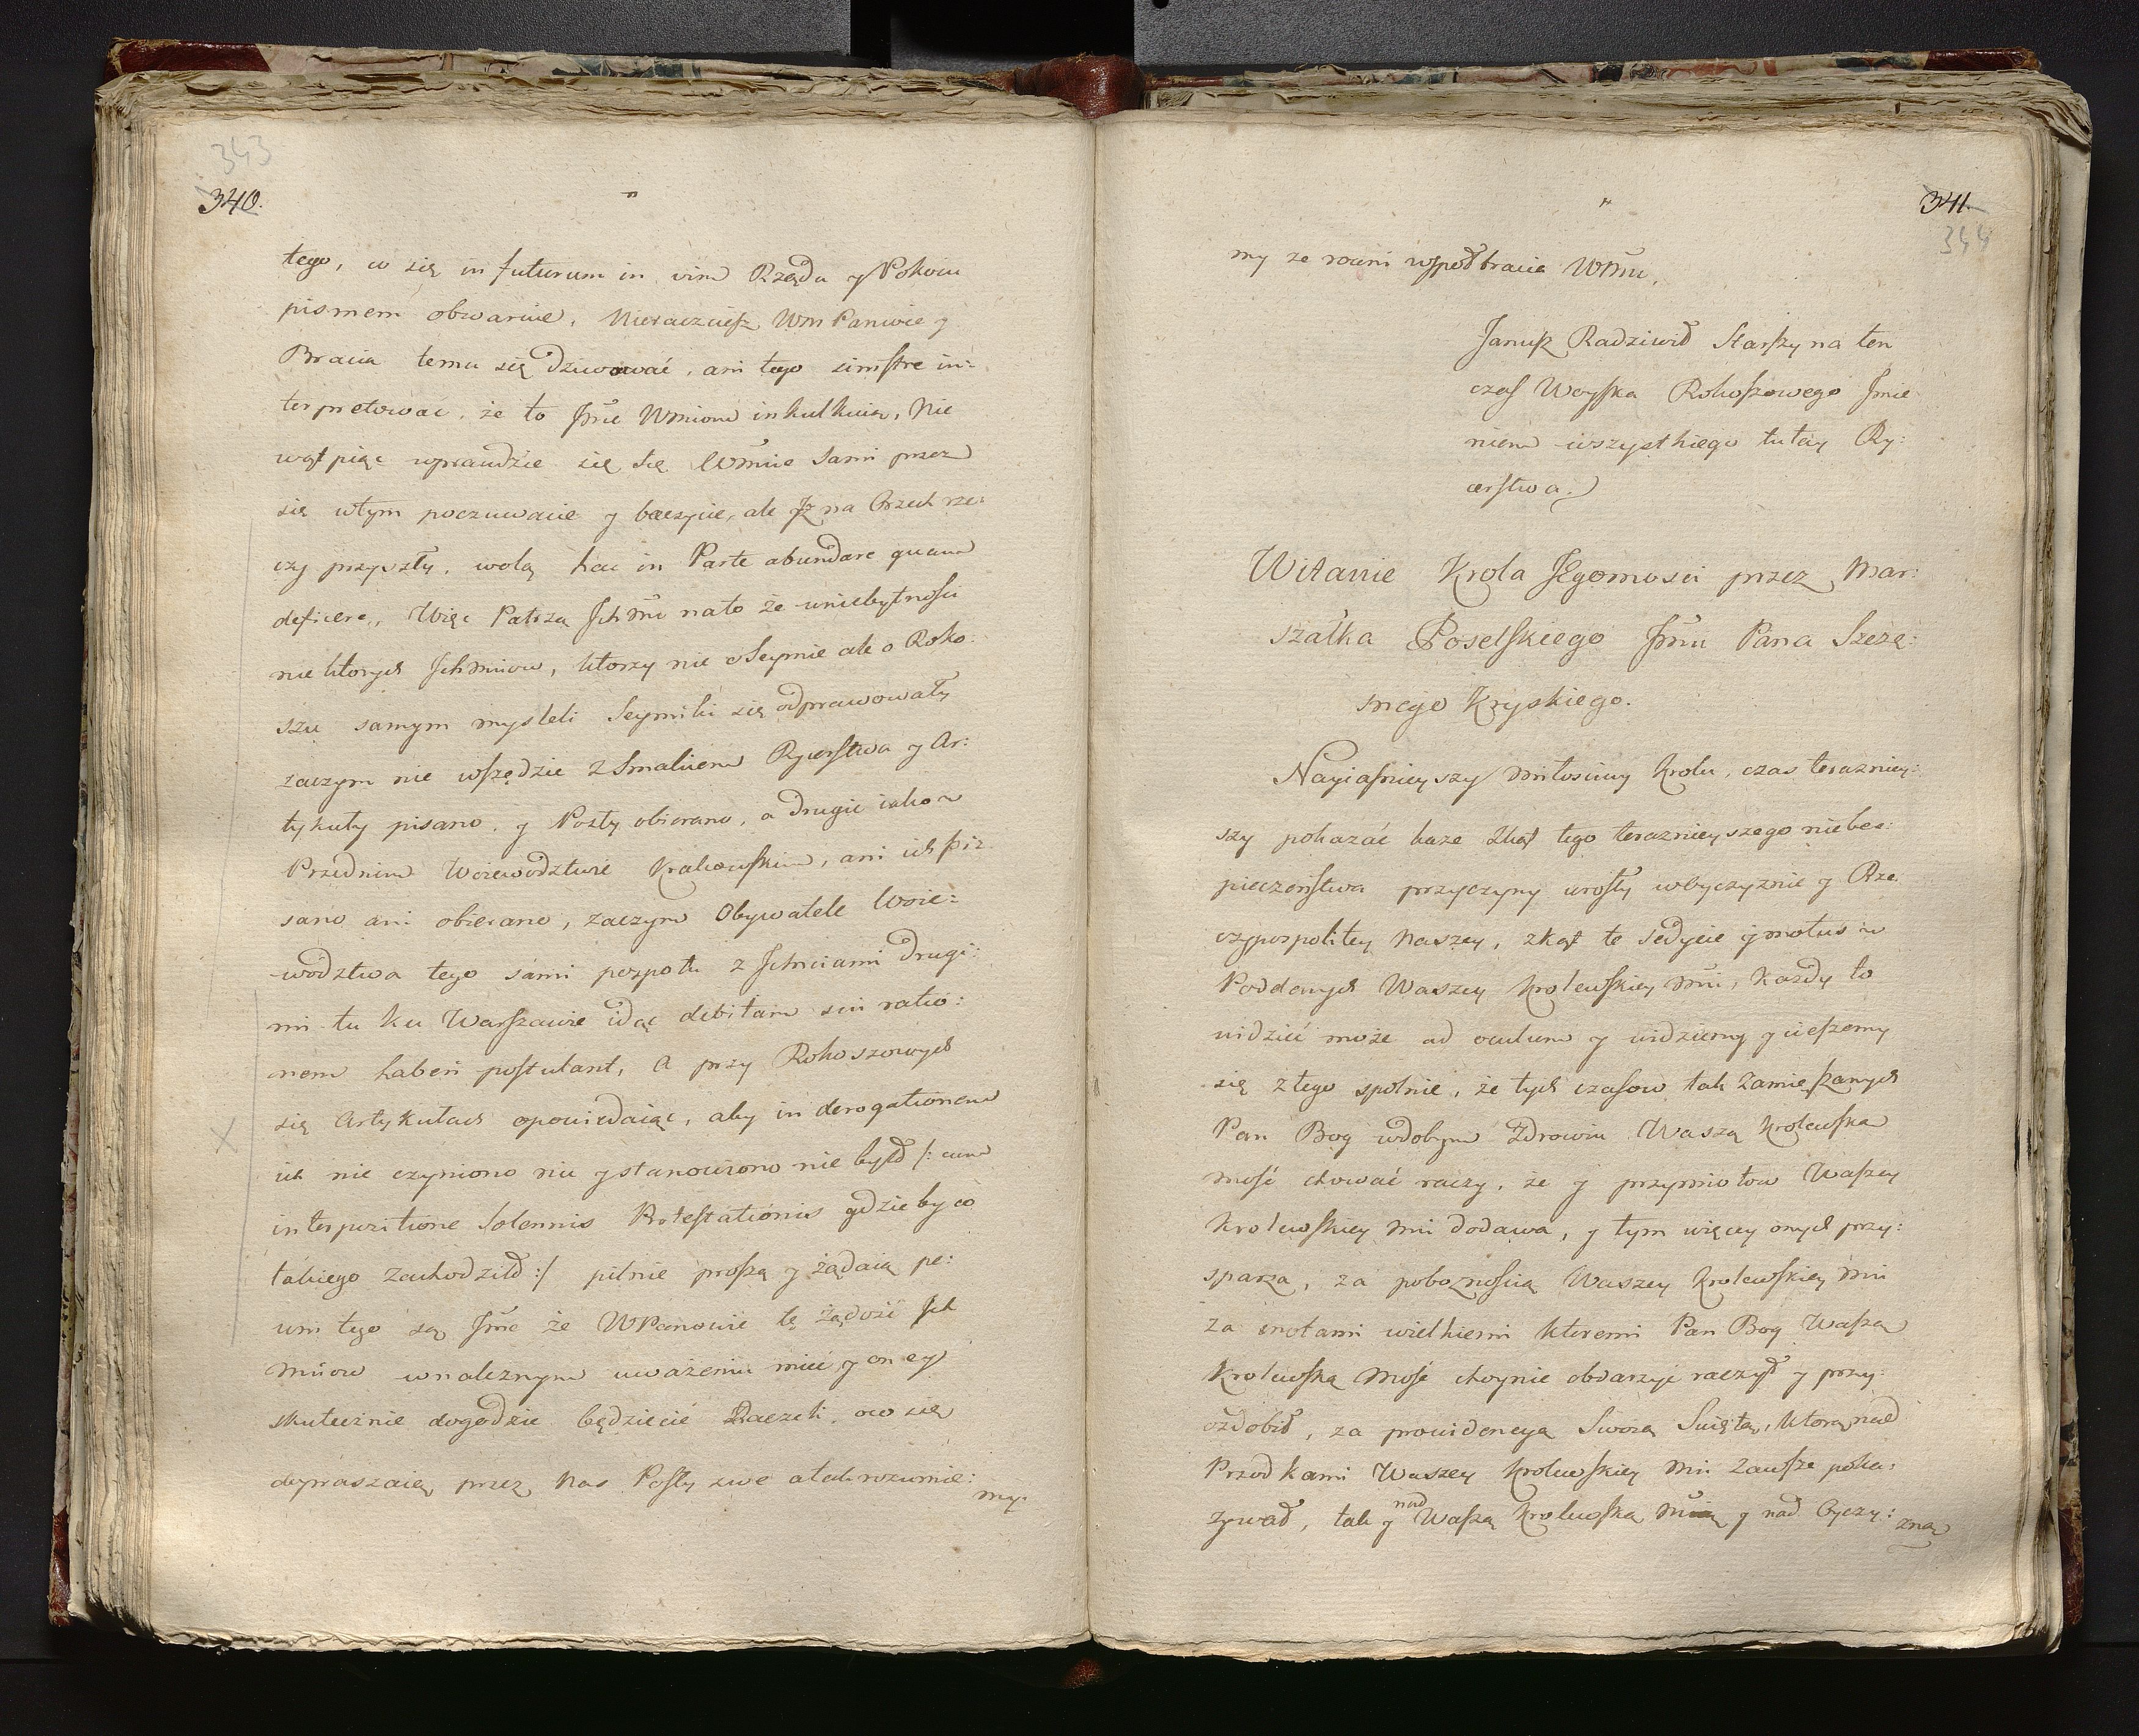 343
340.
tego, co się in futurum in vim Rządu y Pokoiu
pismem obwaruie, Nieraczcież Wm Panowie y
Bracia temu się dziwować, ani tego sinistre in:
terpretować, że to Jchmć Wmciom inkulkuią, Nie
wątpiąc wprawdzie się Wmcie Sami przez
się wtym poczuwacie y baczycie, ale Jż na Grzech rze:
czy przyszły, wolą hac in Parte abundare quam
deficere, Więc Patrzą Jchmć nato że wniebytności
niektorych Jchmciow, ktorzy nie o Seymie ale o Roko:
szu samym mysleli Seymiki się odprawowały
zaczym nie wszędzie Rycerstwa y Ar:
tykuły pisano, y Posły obierano, a drugie iako w
Przednim Woiewodztwie Krakowskim, ani ich pi:
sano ani obierano, zaczym Obywatele Woie:
wodztwa tego sami pospołu z Jchmciami drugi:
mi tu ku Warszawie idąc debitam sui ratio:
nem haberi postulant, A przy Rokoszowych
się Artykułach opowiedaiąc, aby in derogationem
ich nie czyniono nic y stanowiono nie było /: cum
interpositione Solennis Protestationis gdzieby co
takiego zachodziło :/ pilnie proszą y żądaią pe:
wni tego są Jchmć że WPanowie tę żądość Jch
Mciow wnależnym uważeniu mieć y oney
skutecznie dogodzić będziecie Raczeli, oco się
dopraszaią przez nas Posły swe a tak rozumie:
my.
341.
344
my ze rowni wspołbracia WMciu,
Janusz Radziwił Starszy na ten
czas Woyska Rokoszowego Jmie
niem wszystkiego tutay Ry:
cerstwa.
Witanie Krola JEgomosci przez Mar:
szałka Poselskiego Jmci Pana Szczę:
snego Kryskiego.
Nayiasnieyszy Miłosciwy Krolu, czas terazniey:
szy pokazać każe zkąd tego teraznieyszego niebes:
pieczeństwa przyczyny urosły w Oyczyznie y Rze
czypospolitey Naszey, zkąd te Sedycie y motus w
Poddanych Waszey Krolewskiey Mci, każdy to
widzieć może ad oculum y widziemy y cieszemy
się z tego spolnie, że tych czasow tak zamieszanych
Pan Bog wdobrym Zdrowiu Waszą Krolewska
mość chować raczy, że y przymiotow Waszey
Krolewskiey Mci dodawa, y tym więcey onych przy:
sparza, za poboznością Waszey Krolewskiey Mci
za cnotami wielkiemi ktoremi Pan Bog Waszą
Krolewską Mość choynie obdarzyć raczył y przy:
ozdobił, za prowidencyą Swoią Swiętą, ktorą nad
Przodkami Waszey Krolewskiey Mci zawsze poka:
zywał, tak y nad Waszą Krolewską Mcią y nad Oyczy:
zną